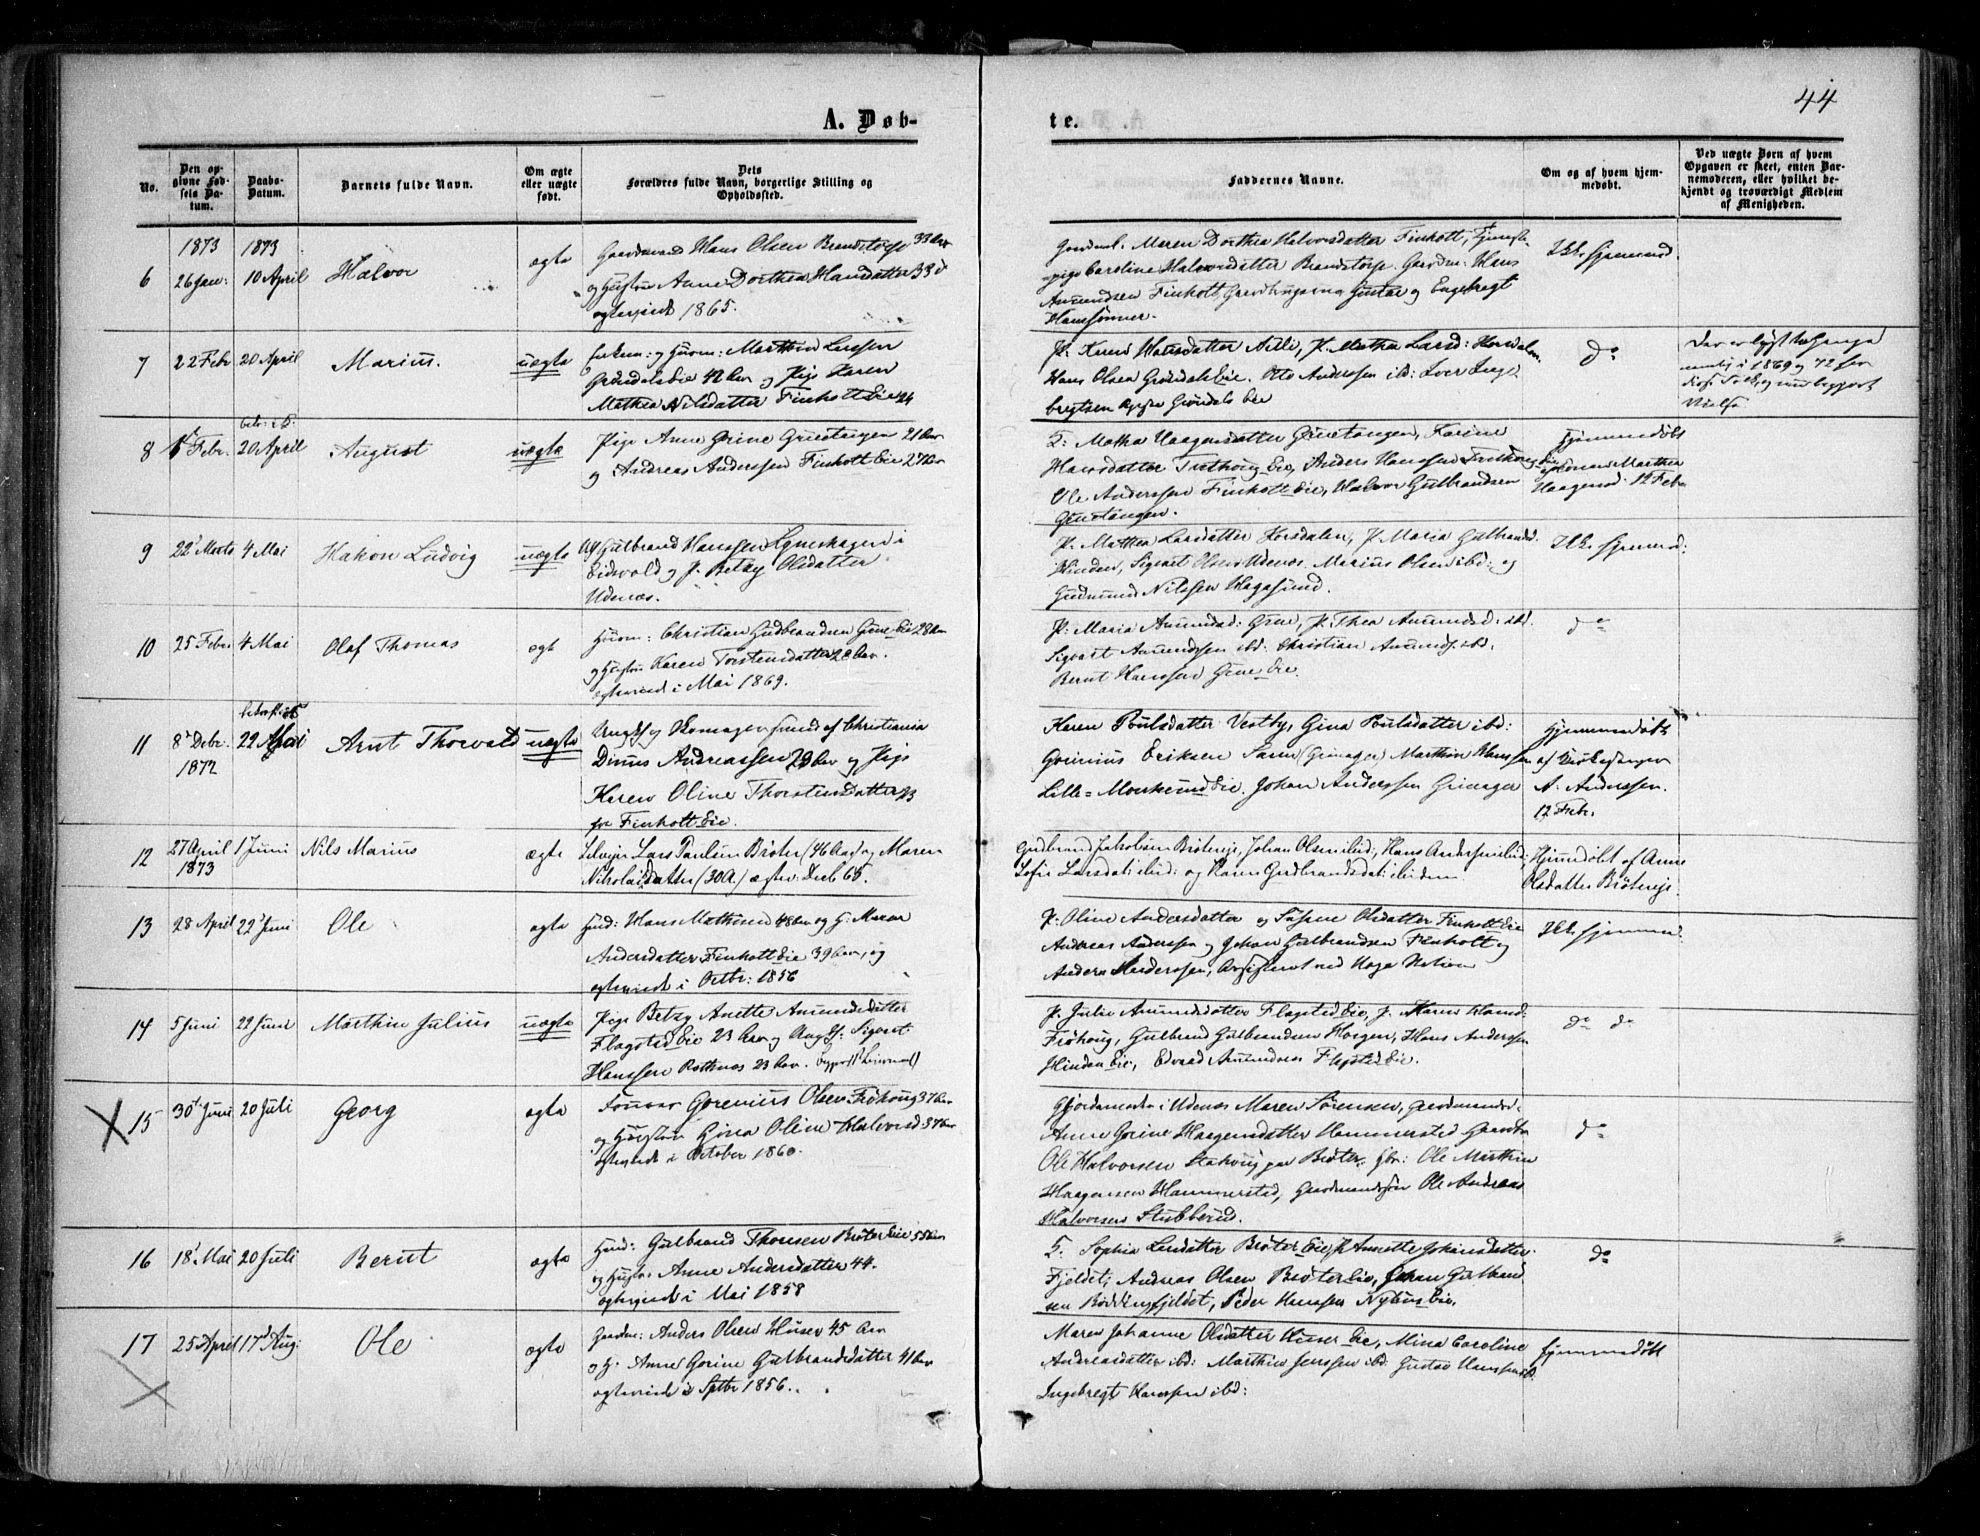 44
A. Døb-
te.
No.
Den op-
givne Fød-
sels Da-
tum.
Daabs-
Datum.
Barnets fulde Navn.
Om ægte
eller uægte
født.
Dets
Forældres fulde Navn, borgerlige Stilling og
Opholdssted.
Faddernes Navne.
Om og af hvem hjem-
medøbt.
Ved uægte Børn af hvem
Opgaven er skeet, enten Bar-
nemoderen, eller hvilket be-
kjendt og troværdigt Medlem
af Menigheden.
1873 1873
6 26 Jan: 10 April Halvor ægte
Gaardmand Hans Olsen Brandstorp 33 Aar
og Hustru Anne Dorthea Hansdatter 33 d
ægteviede 1865.
Maren Dorthea Halvorsdatter Finholt, Tjeneste-
pige Caroline Halvorsdatter Brandstorp. Gaardm: Hans
Amundsen Finholt, Gustav og Engebregt
Hanssønner.
Ikke hjemmed.
7 22 Febr 20 April Marius. uægte
Marthin Larsen
Grøndalseie 42 Aar og Pige Karen
Mathea Nilsdatter Finholteie 24
P: Karen Hansdatter Nilli, P. Mathea Larsd: Horsdalen
Hans Olsen Grøndalseie. Otto Andersen ibd: Iver Inge-
bregtsen Grøndals Eie
do
1869 og 72 for
8 Febr. 20 April August uægte
Pige Anne Gorine Gruetangen 21 Aar
og Andreas Anderssen Finholt Eie 27 Aar
T: Mathea Haagensdatter Gruetangen, Karine
Hansdatter Frøhoug Eie, Anders Hanssen Frøhoug Eie
Ole Anderssen Finholt Eie, Halvor Gulbrandsen
Gruetangen.
Hjemmedøbt
af Konen Marthea
Haagensd. 12 Febr
9 22' Marts 4 Mai Hakon Ludvig uægte
Ug Gulbrand Hanssen Lyneshagen i
Eidsvold og P. Betsy Olsdatter
Udenæs.
P: Mathea Larsdatter Horsdalen, P. Maria Gulbrandsd.
Hinden, Sigvart Olsen Udenæs. Marius Olsen ibd: og
Gudmund Nilssen Hagasund.
Ikke hjemmed:
10 25 Febr. 4 Mai Olaf Thomas ægt
Huusm: Christian Gudbrandsen Grue Eie 28 Aar
og Hustru Karen Torstensdatter 28 Aar.
ægteviede i Mai 1869.
P: Maria Amundsd: Grue, P. Thea Amundsd: ibd.
Sigvart Amundssen ibd: Christian Amunds. ibd.
Bernt Hanssen Grue Eie.
do
11 8' Debr. 1872 22 Mai Arnt Thorvald uægte
Ungkf og Skomagersvend af Christiania
Dinus Andreassen 29 Aar og Pige
Karen Oline Thorstensdatter 23
fra Finholt Eie.
Karen Poulsdatter Vestby, Gina Poulsdatter ibd:
Gorinius Eriksen Sann (Grinager) Marthin Hanssen
Lille-Morkerud Eie. Johan Anderssen Grinager
Hjemmedøbt
af Kirkesanger
A. Andersen.
12 Febr.
12 27 April 1873 1 Juni Nils Marius ægte
Selvejer Lars Paulsen Brøter (46 Aar) og Maren
Nikolaisdatter (30 A.) ægtev. Decb 65.
Gudbrand Jakobsen Brøtereje, Johan Olsen ibid, Hans Andersen ibid:
Sofie Larsdat: ibid: og Karen Gudbrandsdat: ibidem
Hjemdøbt af Anne
Olsdatter Brøterejet
13 28 April 22' Juni Ole ægte
Husd: Hans Mathisen 48 Aar og H: Maren
Andersdatter Finholt Eie 39 Aar, og
ægteviede i Octbr: 1856
P: Oline Andersdatter og Josefine Olsdatter Finholt Eie
Andreas Anderssen og Johan Gulbrandsen Finholt og
Anders Anderssen, ved Haga Station
Ikke hjemmed:
14 5 Juni 22 Juni Marthin Julius uægte
Pige Betzy Anette Amundsdatter
Flagsted Eie 23 Aar og Ungkf: Sigvart
Hanssen Rothnæs 23 Aar.
P. Julie Amundsdatter Flagsted Eie, P. Maren Hansd.
Frøhoug, Gulbrand Gulbrandsen Haugen, Hans Anderssen
Hinden Eie, Edvard Amundsen Flagsted Eie.
do do
15 30te Juni 20 Juli Georg ægte
Gorenius Olsen Frøhoug 37 Aar
og Hustru Gina Oline Halvorsd: 37 Aar
ægteviede i October 1860.
Gjordemoder i Udenæs Maren Sørensen, Gaardmandsd.
Anne Gorine Haagensdatter Hammersted Gaardm
Ole Halvorsen Stakvig Brøter, Gbr: Ole Marthin
Haagensen Hammerstad, Gaardmandssøn Ole Andreas
Halvorsen Stubberud.
do
16 18' Mai 20 Juli Bernt ægte
Husd: Gulbrand Thomsen Brøter Eie 55 Aar
og Hustru Anne Andersdatter 44.
ægteviede i Mai 1858
T: Sophia Larsdatter Brøter Eie, P. Annette Johansdatter
Fjeldet, Andreas Olsen Brøter Eie, Johan Gulbrand-
sen Bøddingfjeldet, Peder Hanssen Nyhus Eie.
do
17 25 April 17d Aug: Ole ægte
Gaardm: Anders Olsen Huser 45 Aar
og H. Anne Gorine Gulbrandsdatter 41 Aar
ægteviede i Septbr 1856.
Maren Johanne Olsdatter Huser Eie, Mina Caroline
Andreasdatter ibd: Marthin Jenssen ibd: Gustav Hanssen ibd.
Ingebregt Hanssen ibd:
hjemmedøbt